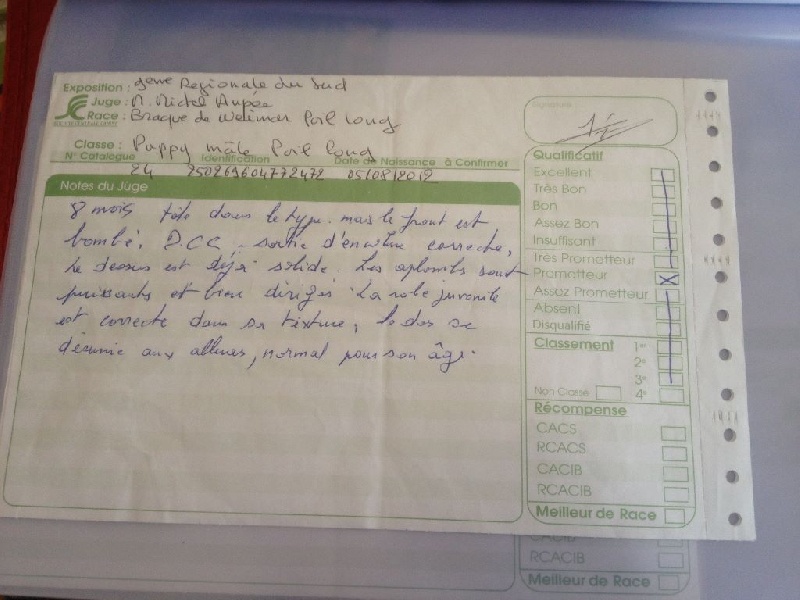 Exposition : 3ème Régionale du Sud
Juge : M. Michel
Race : Braque de Weimar Poil Long
Classe : Puppy mâle Poil Long
N° Catalogue Identification Date de Naissance à Confirmer
24 05/08/2012
Notes du Juge
8 mois tête dans le type. mais le front est
bombé. D.C.C. sortie d'encolure correcte,
le dessus est déjà solide. Les aplombs sont
puissants et bien dirigés. La robe juvénile
est correcte dans sa texture, le dos se
désunie aux allures, normal pour son âge.
Signature :
Qualificatif
Excellent
Très Bon
Bon
Assez Bon
Insuffisant
Très Prometteur
Prometteur X
Assez Prometteur
Absent
Disqualifié
Classement 1er
2e
3e
Non Classé 4e
Récompense
CACS
RCACS
CACIB
RCACIB
Meilleur de Race
CACIB
RCACIB
Meilleur de Race